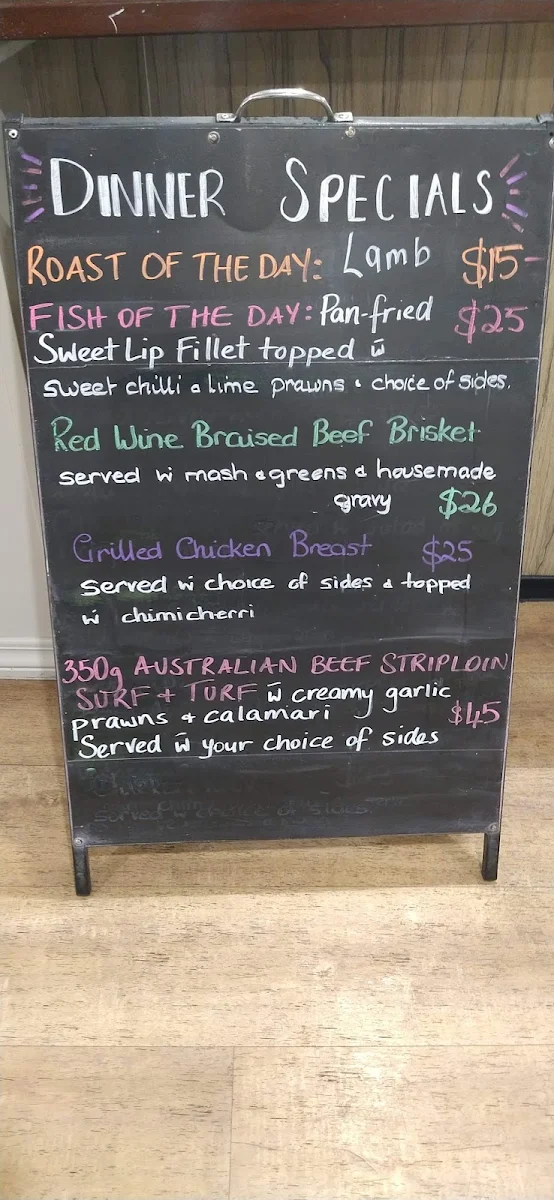 DINNER SPECIALS
ROAST OF THE DAY: Lamb $15-
FISH OF THE DAY: Pan-fried $25
Sweet Lip Fillet topped w̄
sweet chilli & lime prawns & choice of sides.
Red Wine Braised Beef Brisket
served w̄ mash & greens & housemade
gravy $26
Grilled Chicken Breast $25
served w̄ choice of sides & topped
w̄ chimicherri
350g AUSTRALIAN BEEF STRIPLOIN
SURF + TURF w̄ creamy garlic
prawns + calamari $45
Served w̄ your choice of sides
served w choice of sides.